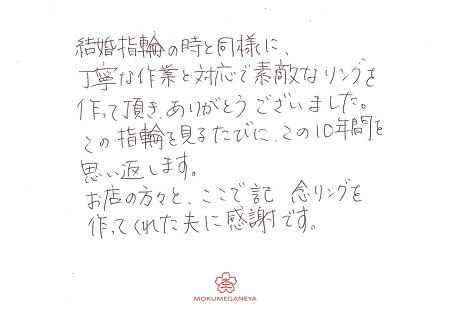 結婚指輪の時と同様に、
丁寧な作業と対応で素敵なリングを
作って頂き、ありがとうございました。
この指輪を見るたびに、この10年間を
思い返します。
お店の方々と、ここで記念リングを
作ってくれた夫に感謝です。
MOKUMEGANEYA